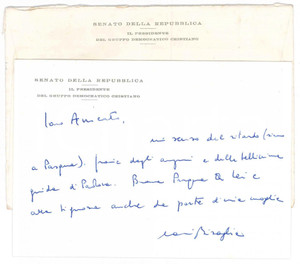 SENATO DELLA REPUBBLICA
IL PRESIDENTE
DEL GRUPPO DEMOCRATICO CRISTIANO
SENATO DELLA REPUBBLICA
IL PRESIDENTE
DEL GRUPPO DEMOCRATICO CRISTIANO
Caro
mi scuso del ritardo (siamo
a Pasqua). Grazie degli auguri e della bellissima
guida di Padova. Buona Pasqua a Lei e
alla Signora anche da parte di mia moglie